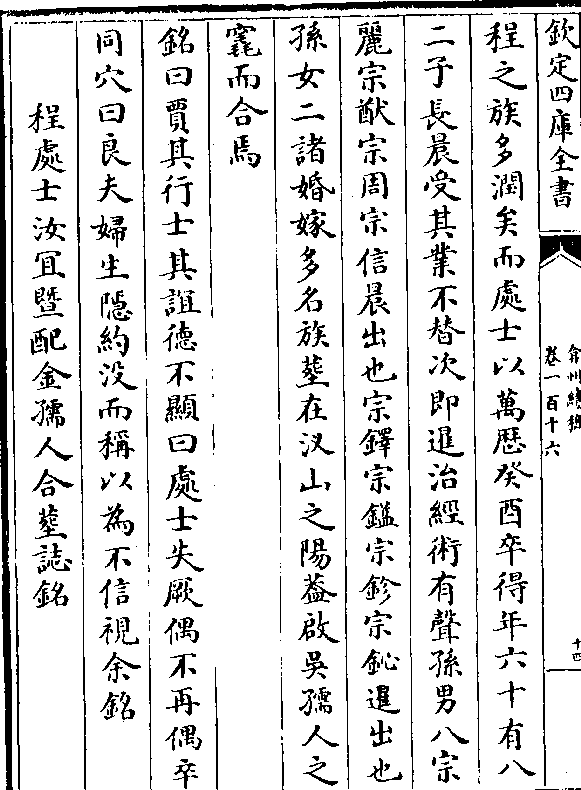 欽定四庫全書
弇州續稿
卷一百十六
十四
程之族多潤矣而處士以萬厯癸酉卒得年六十有八
二子長晨受其業不替次即暹治經術有聲孫男八宗
麗宗猷宗周宗信晨出也宗鐸宗鎰宗鉁宗鉍暹出也
孫女二諸婚嫁多名族塟在汊山之陽葢啟吳孺人之
竁而合焉
銘曰賈其行士其誼德不顯曰處士失厥偶不再偶卒
同穴曰良夫婦生隱約没而稱以為不信視余銘
程處士汝宜暨配金孺人合塟誌銘